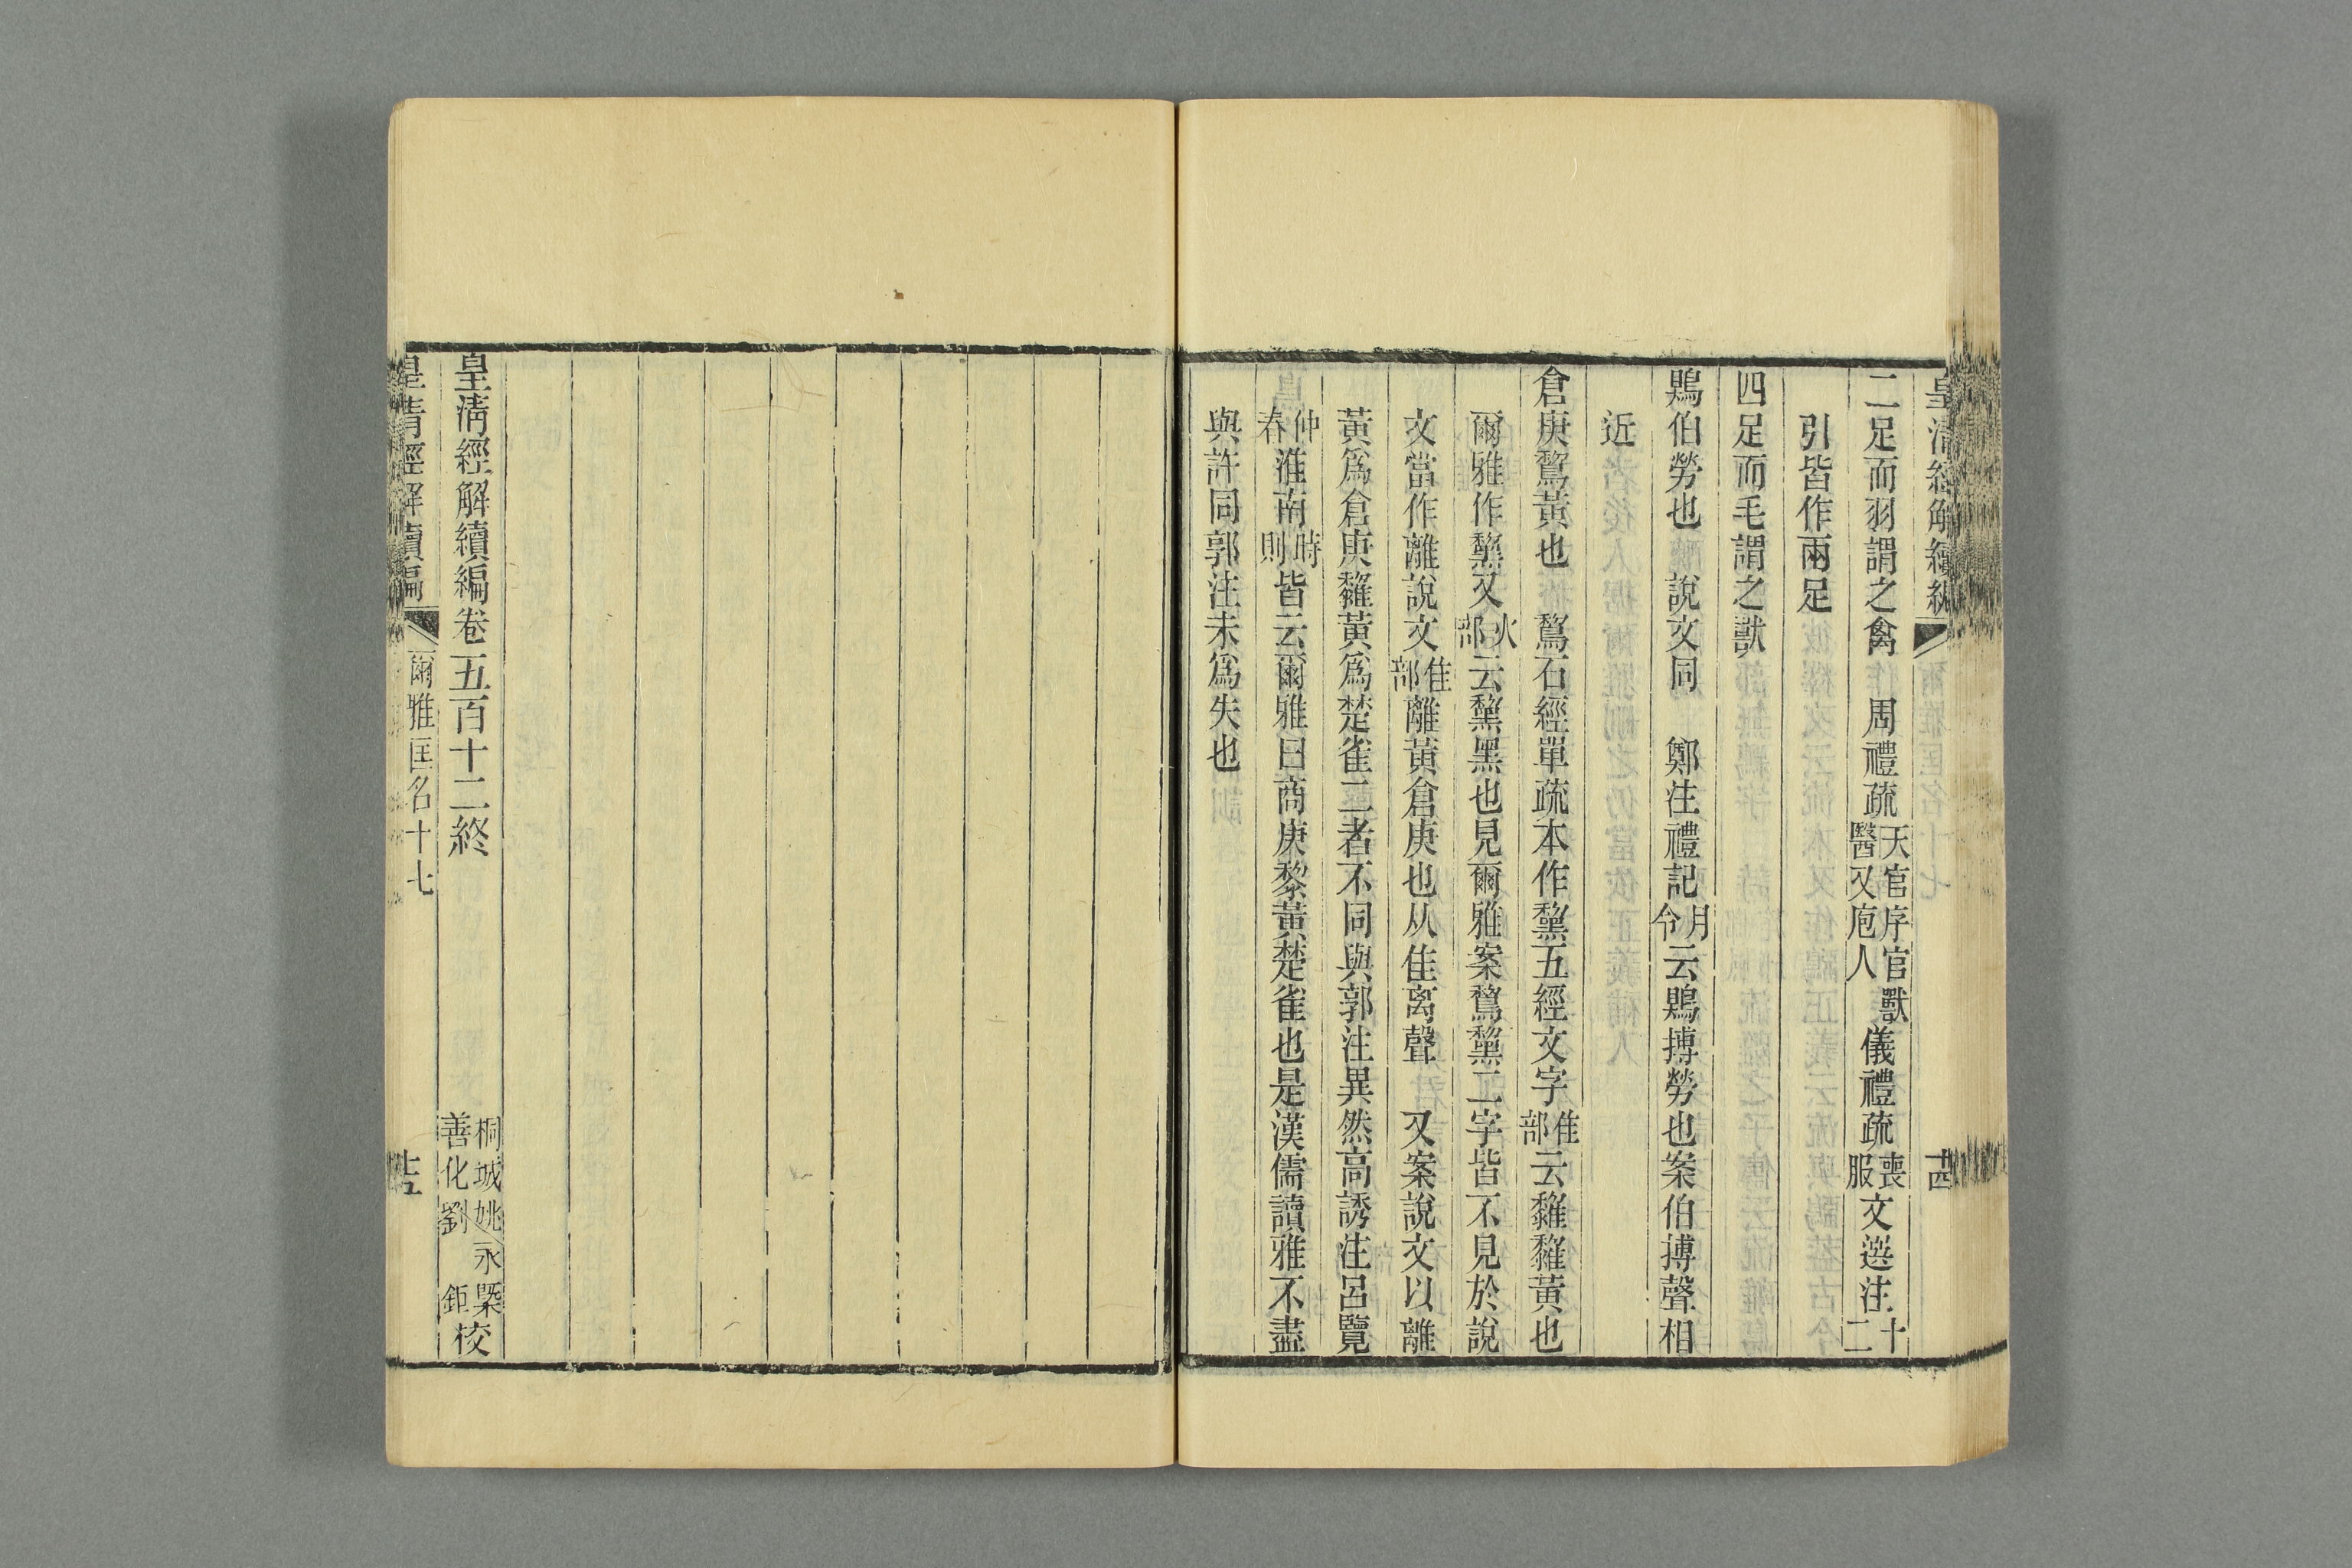 皇淸經解續編　爾雅匡名十七　十四
二足而羽謂之禽　周禮疏天官序官獸醫又庖人儀禮疏喪服文選注十二
引皆作兩足
四足而毛謂之獸
鶪伯勞也　說文同　鄭注禮記月令云鶪搏勞也案伯搏聲相
近
倉庚鵹黃也　鵹石經單疏本作黧五經文字隹部云雞鵹黃也
爾雅作黧又火部云黧黑也見爾雅案鵹黧二字皆不見於說
文當作離說文隹部離黃倉庚也从隹离聲　又案說文以離
黃爲倉庚雞黃爲楚雀二者不同與郭注異然高誘注呂覽
仲春淮南時則皆云爾雅曰商庚黎黃楚雀也是漢儒讀雅不盡
與許同郭注未爲失也
皇淸經解續編卷五百十二終　桐城姚永槩善化劉鉅校
皇淸經解續編　爾雅匡名十七　十五